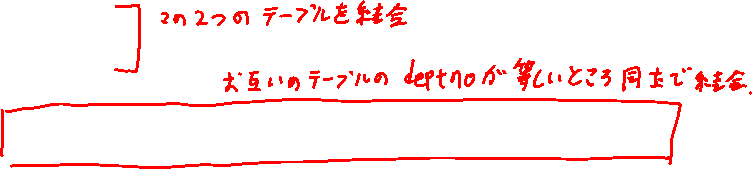 この2つのテーブルを結合
お互いのテーブルの deptno が 等しいところ同士で結合.